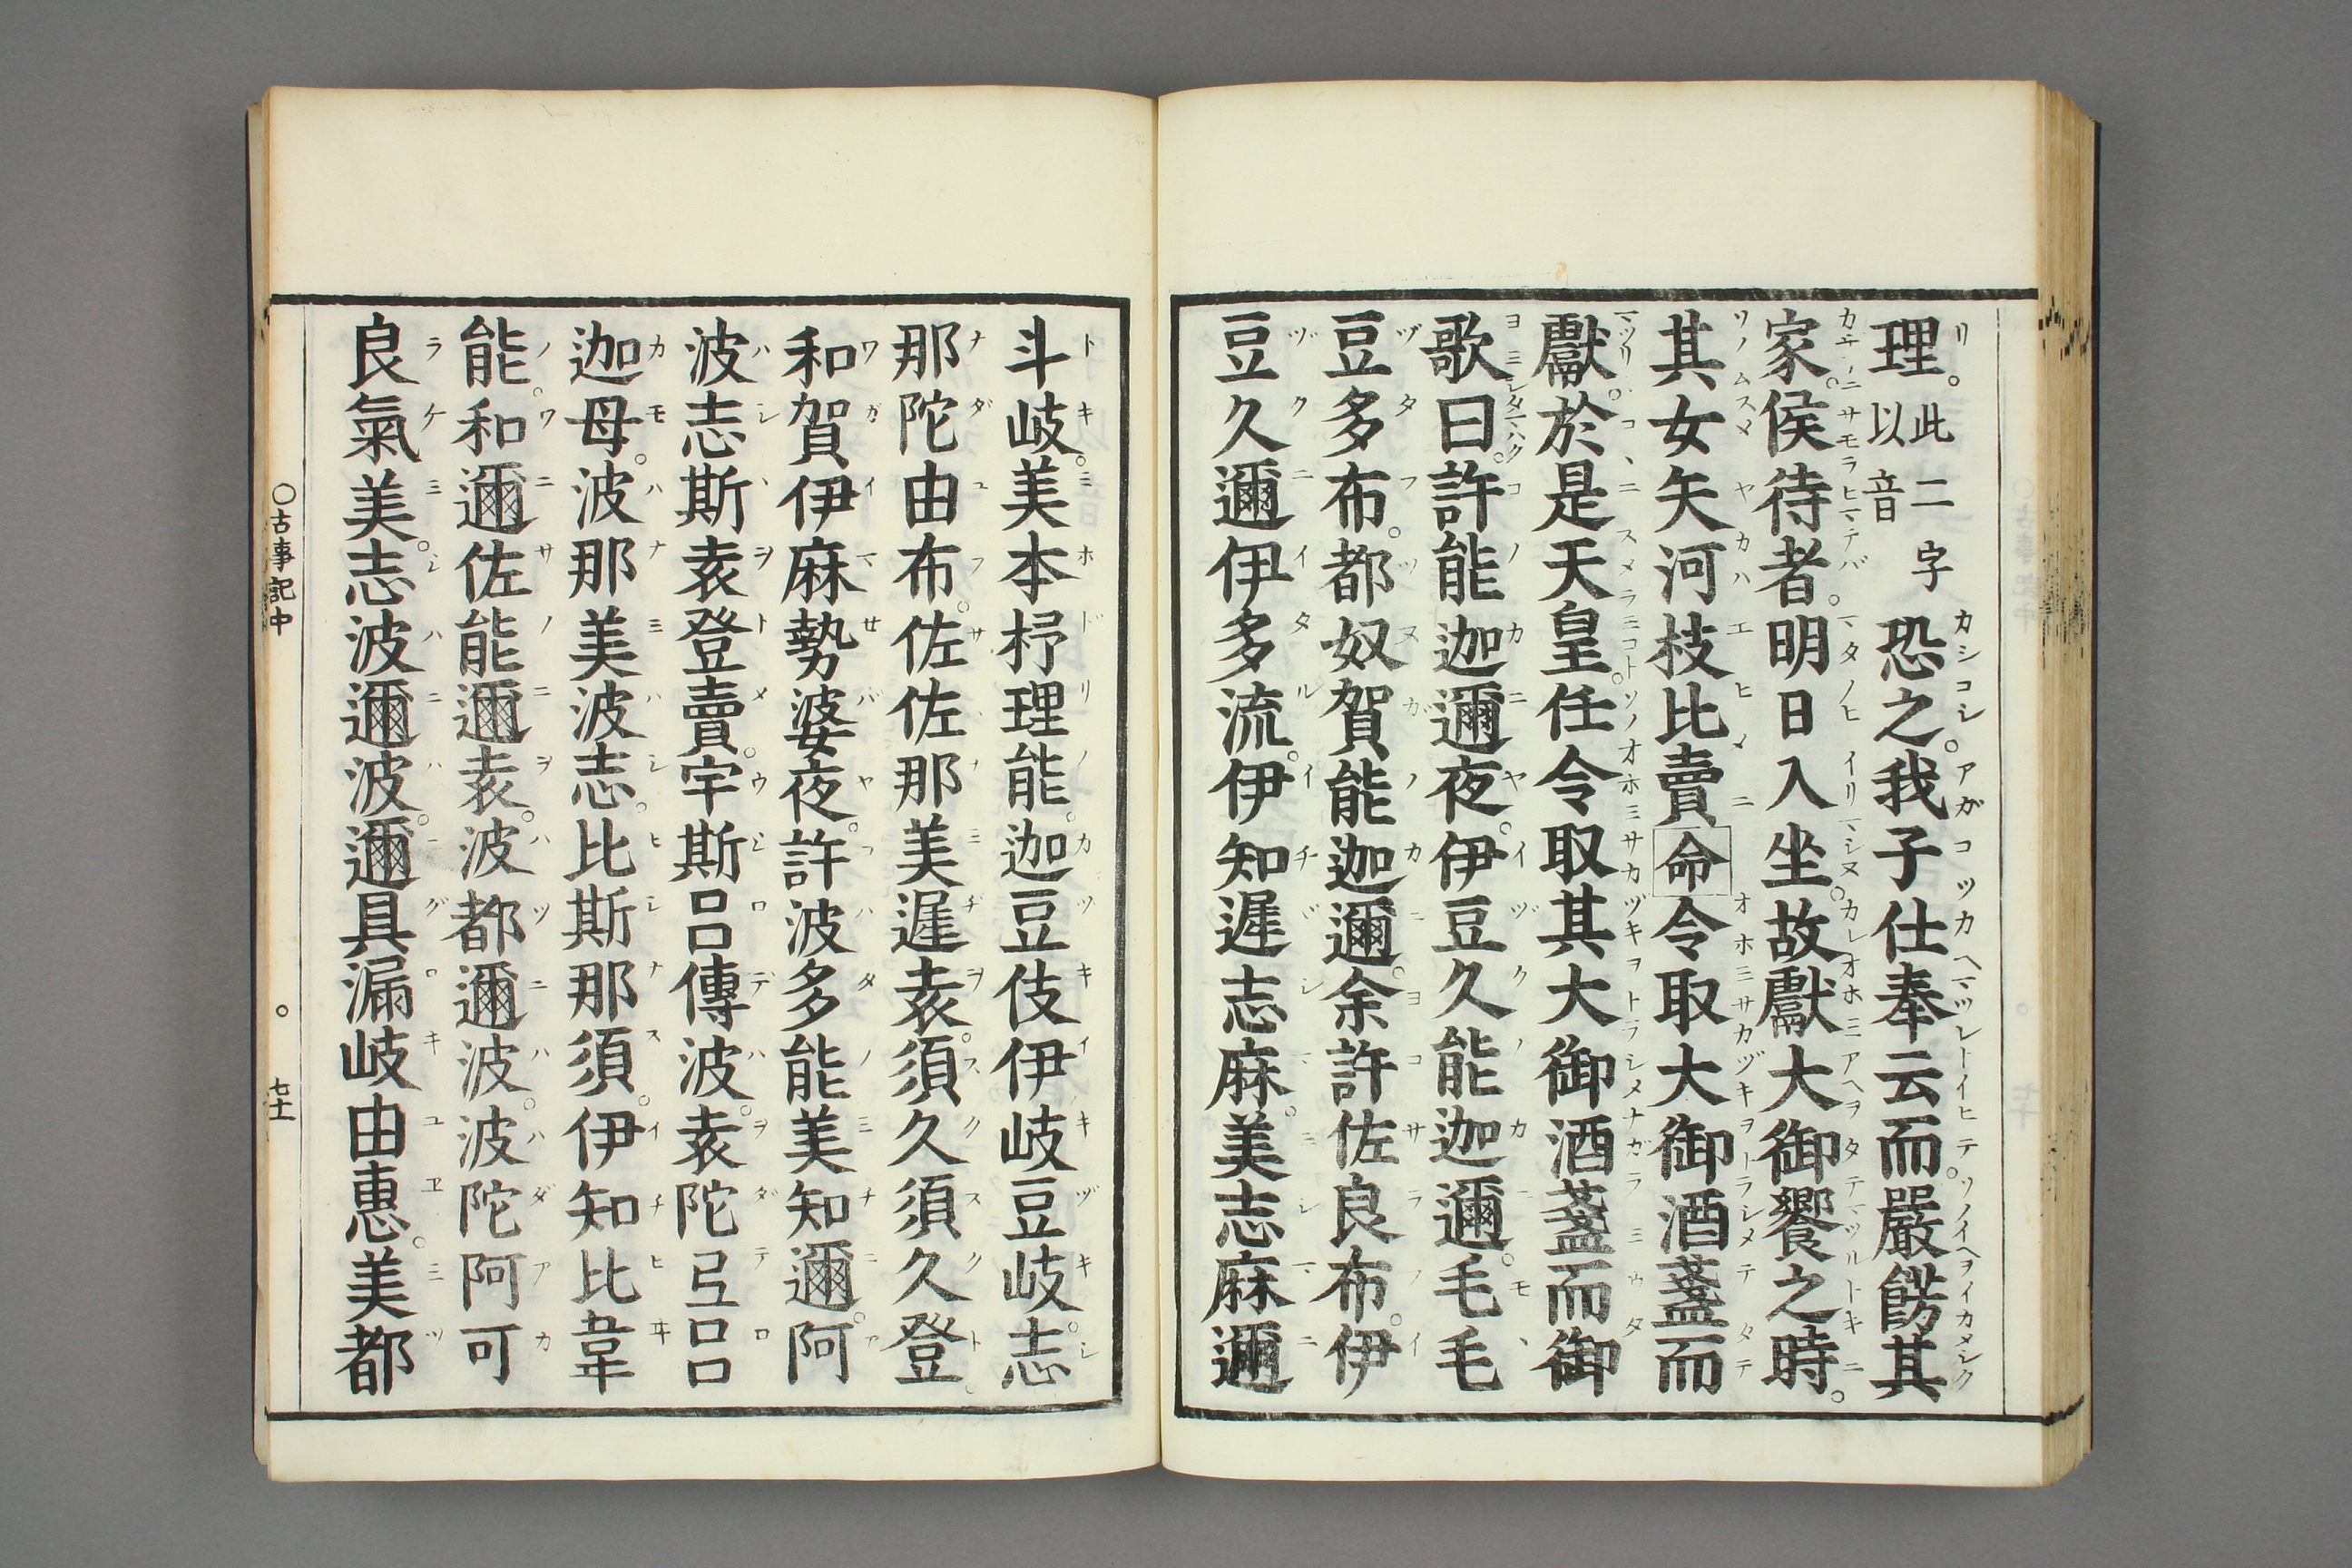 理。此二字以音恐之。我子仕奉云而。嚴餝其
家。侯待者。明日入坐。故獻大御饗之時。
其女矢河枝比賣命令取大御酒盞而
獻。於是天皇。任令取其大御酒盞而御
歌曰。許能迦邇夜。伊豆久能迦邇。毛毛
豆多布。都奴賀能迦邇。余許佐良布。伊
豆久邇伊多流。伊知遲志麻。美志麻邇
斗岐。美本杼理能。迦豆伎伊岐豆岐。志
那陀由布。佐佐那美遲袁。須久須久登。
和賀伊麻勢婆夜。許波多能美知邇。阿
波志斯袁登賣。宇斯呂傳波。袁陀弖呂
迦母。波那美波志。比斯那須。伊知比韋
能。和邇佐能邇袁。波都邇波。波陀阿可
良氣美。志波邇波。邇具漏岐由惠。美都
○古事記中 ○ 七十一